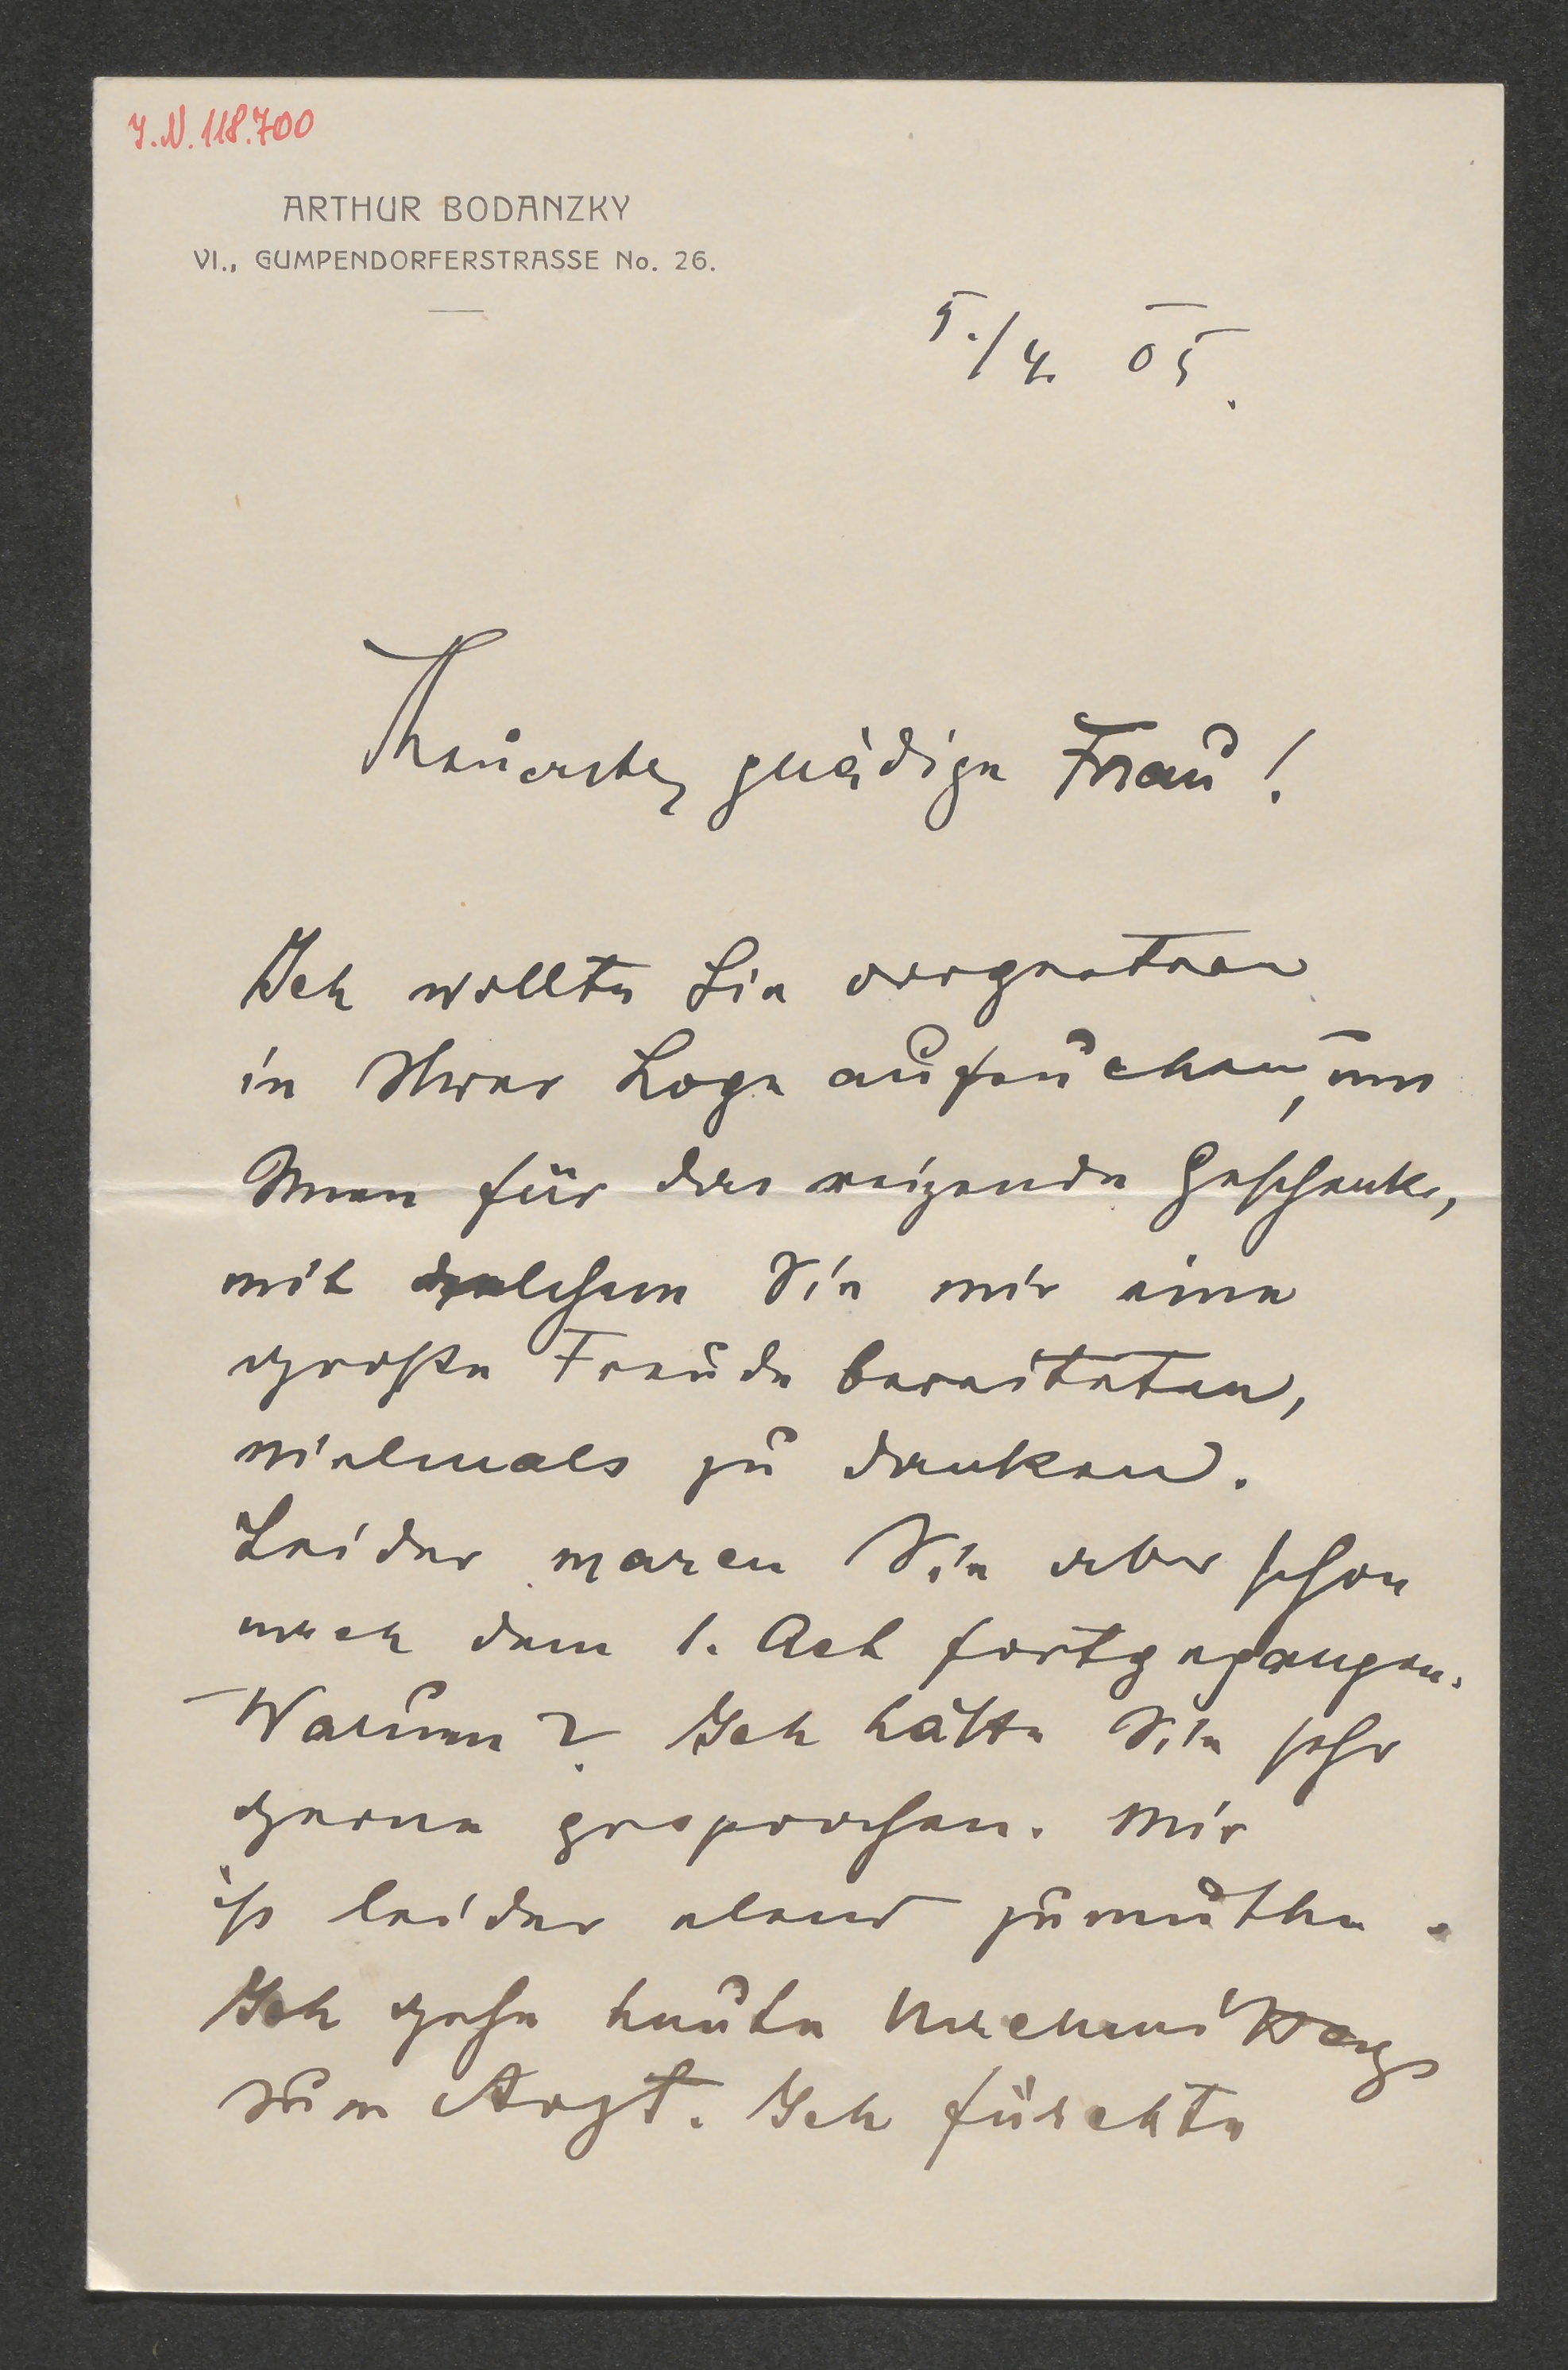 J.N. 118.700
ARTHUR BODANZKY
VI., GUMPENDORFERSTRASSE No. 26.
5./4. 05.
Theuerste, gnädige Frau!
Ich wollte Sie vorgestern
in Ihrer Loge aufsuchen, um
Ihnen für das reizende Geschenk,
mit welchem Sie mir eine
große Freude bereiteten,
vielmals zu danken.
Leider waren Sie aber schon
nach dem 1. Act fortgegangen.
Warum? Ich hätte Sie sehr
gerne gesprochen. Mir
ist leider elend zumuthe.
Ich gehe heute Nachmittags
zum Arzt. Ich fürchte